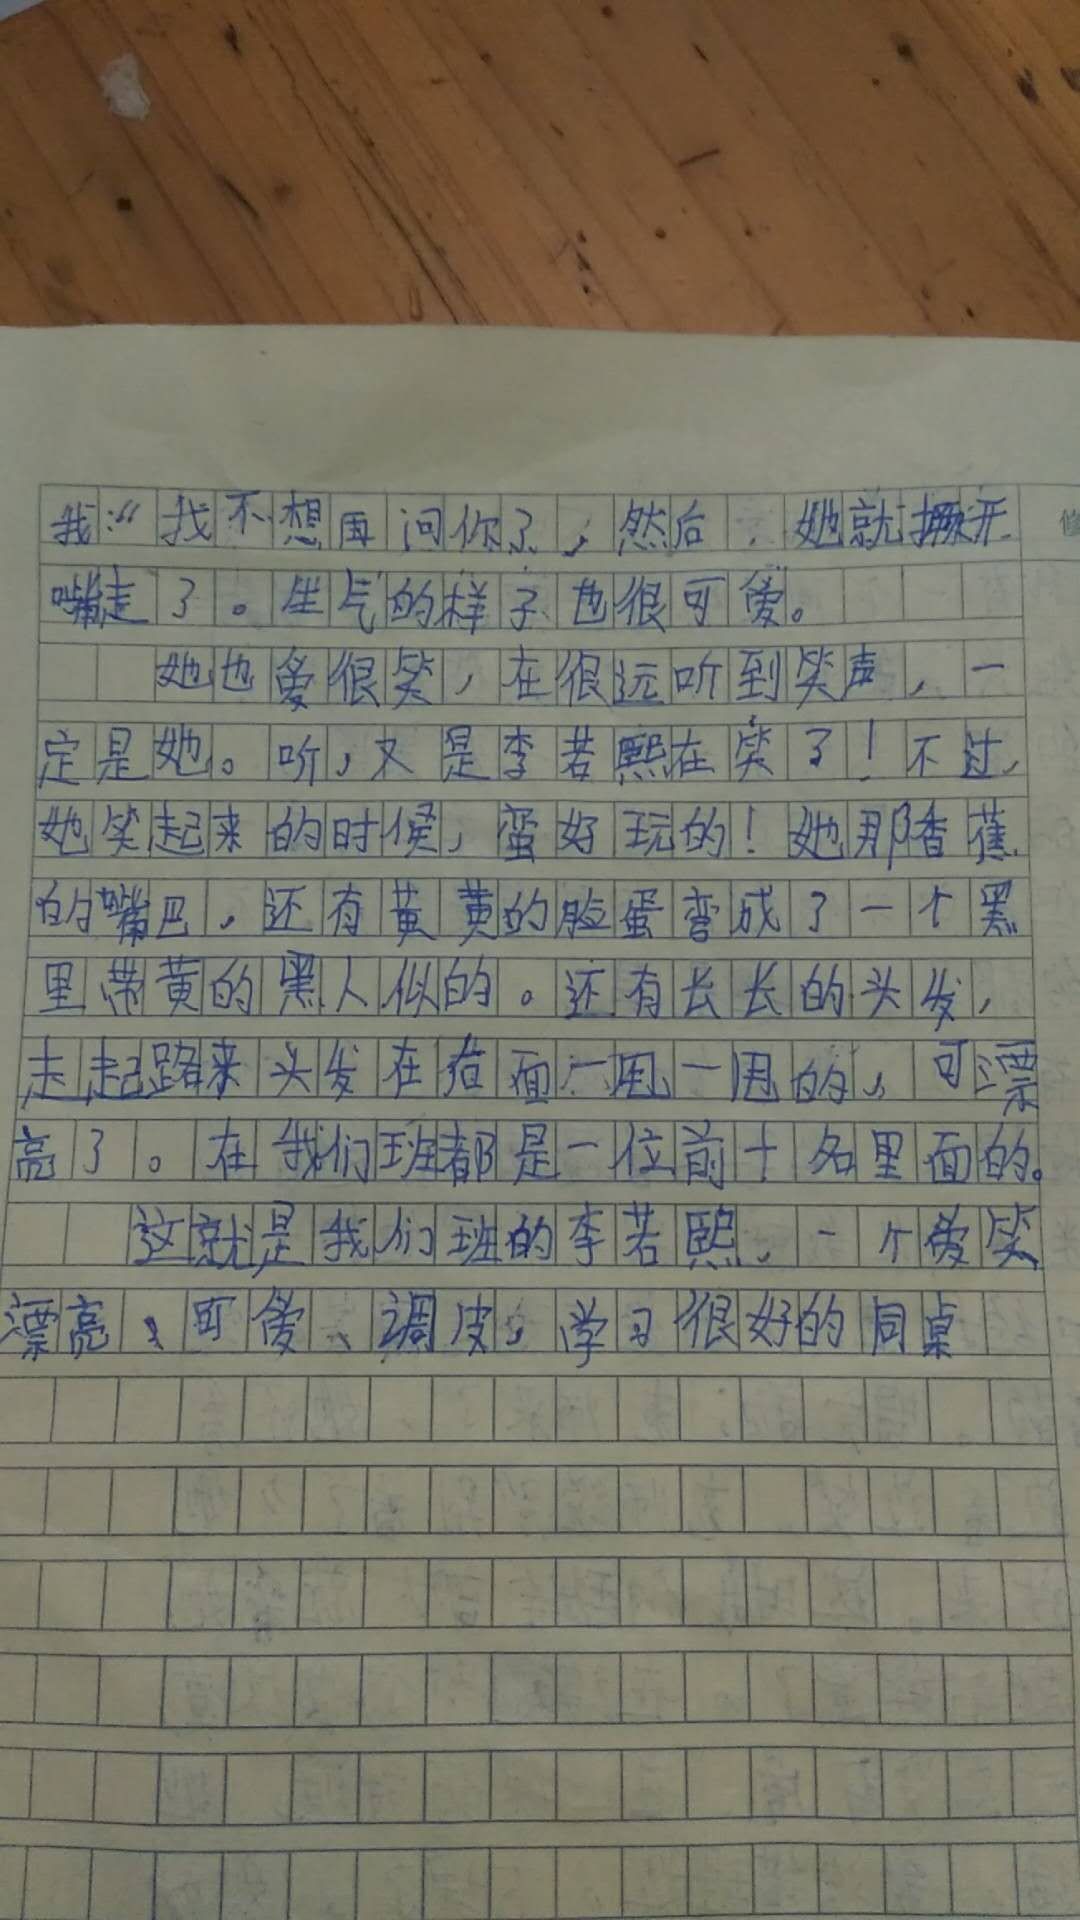 我：“我不想再问你了，然后，她就撅开
嘴走了。生气的样子也很可爱。
她也爱很笑，在很远听到笑声，一
定是她。听，又是李若熙在笑了！不过，
她笑起来的时候，蛮好玩的！她那香蕉
的嘴巴，还有黄黄的脸蛋变成了一个黑
里带黄的黑人似的。还有长长的头发，
走起路来头发在后面一甩一甩的，可漂
亮了。在我们班都是一位前十名里面的。
这就是我们班的李若熙，一个爱笑
漂亮、可爱、调皮，学习很好的同桌